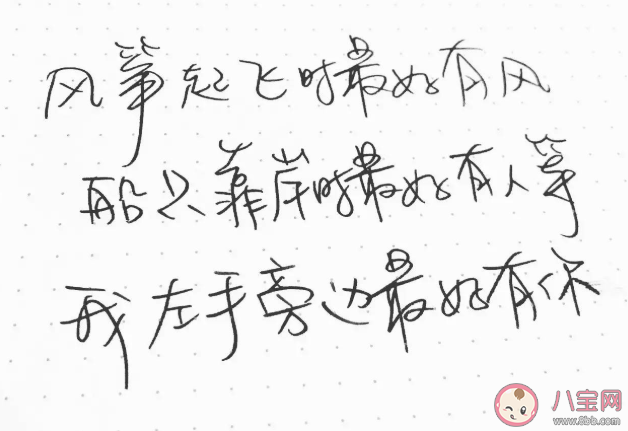 风筝起飞时最好有风
船只靠岸时最好有人等
我左手旁边最好有你
八宝网
www.8bb.com